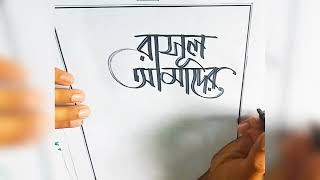 রাসূল
আমাদের